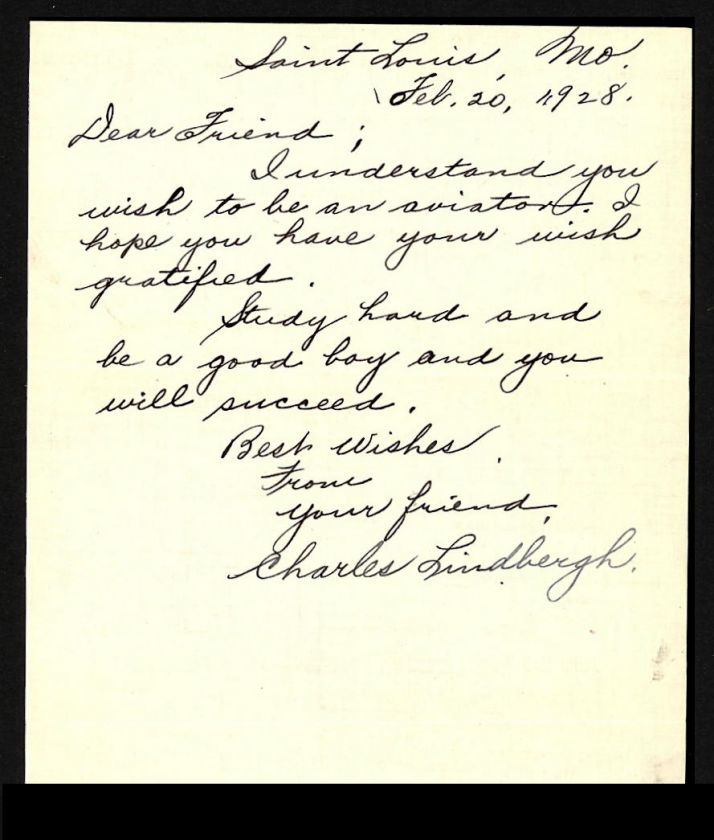 Saint Louis, Mo.
Feb. 20, 1928.
Dear Friend;
I understand you
wish to be an aviator. I
hope you have your wish
gratified.
Study hard and
be a good boy and you
will succeed.
Best Wishes.
From
your friend,
Charles Lindbergh.